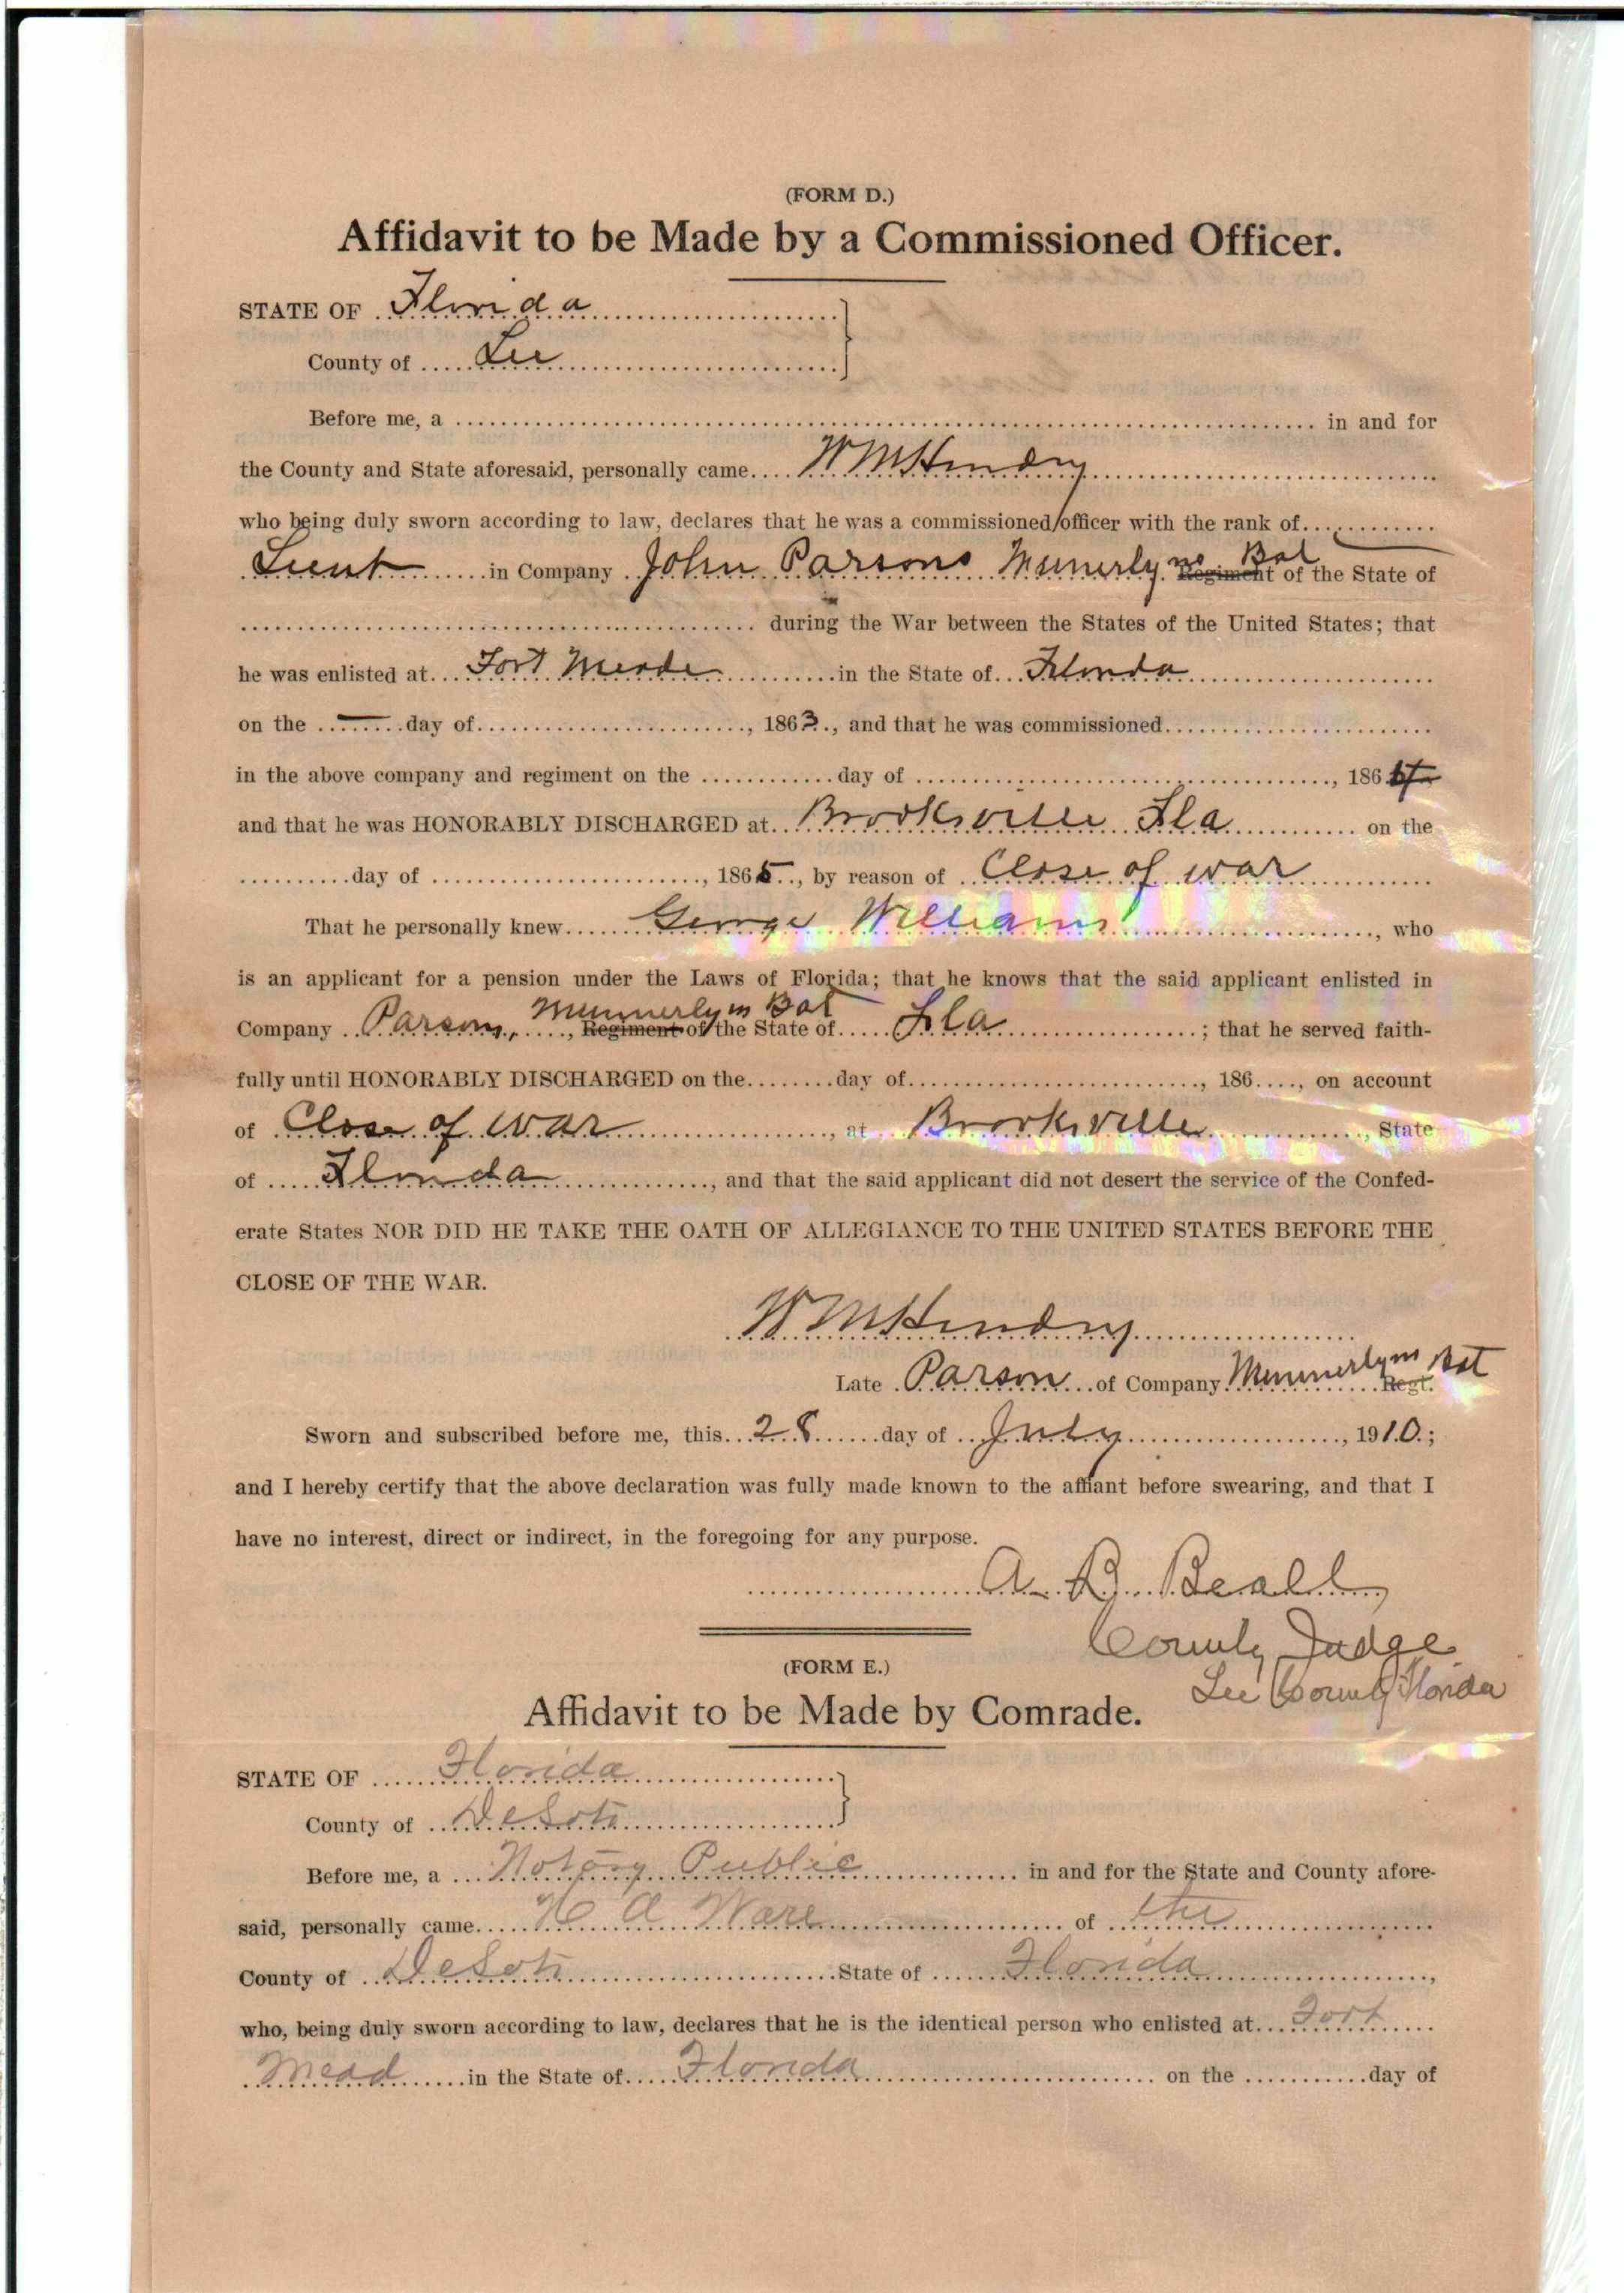 (FORM D.)
Affidavit to be Made by a Commissioned Officer.
STATE OF Florida
County of Lee
Before me, a in and for
the County and State aforesaid, personally came W M Hendry
who being duly sworn according to law, declares that he was a commissioned officer with the rank of
Lieut in Company John Parsons Munnerlyns Bat Regiment of the State of
during the War between the States of the United States; that
he was enlisted at Fort Meade in the State of Florida
on the — day of , 1863, and that he was commissioned
in the above company and regiment on the day of , 186
and that he was HONORABLY DISCHARGED at Brooksville Fla on the
day of , 1865, by reason of Close of war
That he personally knew George Williams , who
is an applicant for a pension under the Laws of Florida; that he knows that the said applicant enlisted in
Company Parsons, Munnerlyns Bat, Regiment of the State of Fla ; that he served faith-
fully until HONORABLY DISCHARGED on the day of , 186 , on account
of Close of war , at Brooksville , State
of Florida , and that the said applicant did not desert the service of the Confed-
erate States NOR DID HE TAKE THE OATH OF ALLEGIANCE TO THE UNITED STATES BEFORE THE
CLOSE OF THE WAR.
W M Hendry
Late Parson of Company Munnerlyns Bat Regt.
Sworn and subscribed before me, this 28 day of July , 1910;
and I hereby certify that the above declaration was fully made known to the affiant before swearing, and that I
have no interest, direct or indirect, in the foregoing for any purpose.
A. B. Beall,
County Judge
Lee County Florida
(FORM E.)
Affidavit to be Made by Comrade.
STATE OF Florida
County of DeSoto
Before me, a Notary Public in and for the State and County afore-
said, personally came H A Ware of the
County of DeSoto State of Florida ,
who, being duly sworn according to law, declares that he is the identical person who enlisted at Fort
Mead in the State of Florida on the day of